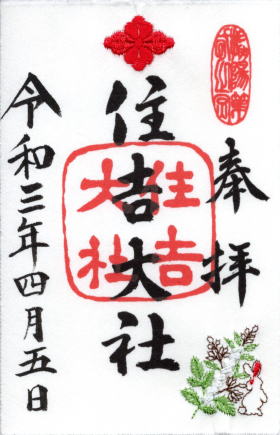 奉拝
住吉大社
住吉大社
令和三年四月五日